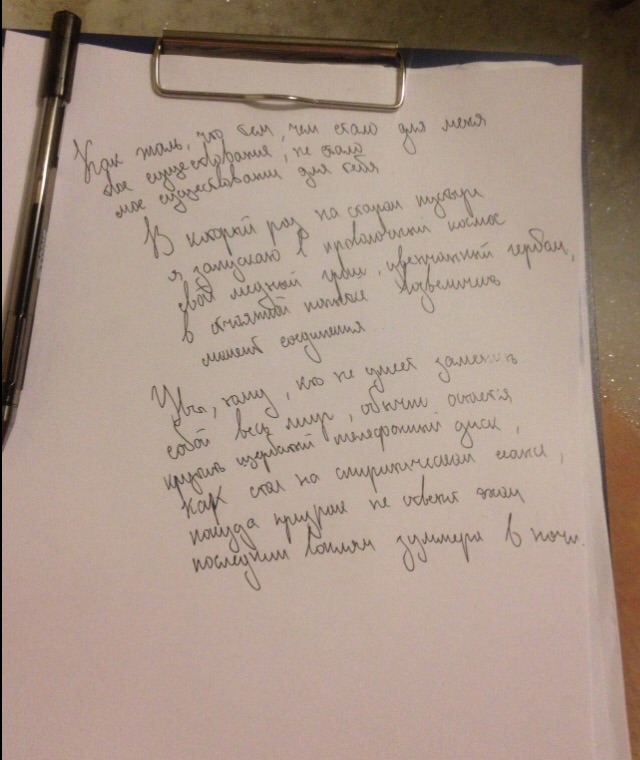 Как жаль, что тем, чем стало для меня
твое существование, не стало
мое существование для тебя
В который раз на старом пустыре
я запускаю в проволочный космос
свой медный грош, увенчанный гербом,
в отчаянной попытке возвеличить
момент соединения
Увы, тому, кто не умеет заменить
собой весь мир, обычно остается
крутить щербатый телефонный диск,
как стол на спиритическом сеансе,
покуда призрак не ответит эхом
последним воплям зуммера в ночи.